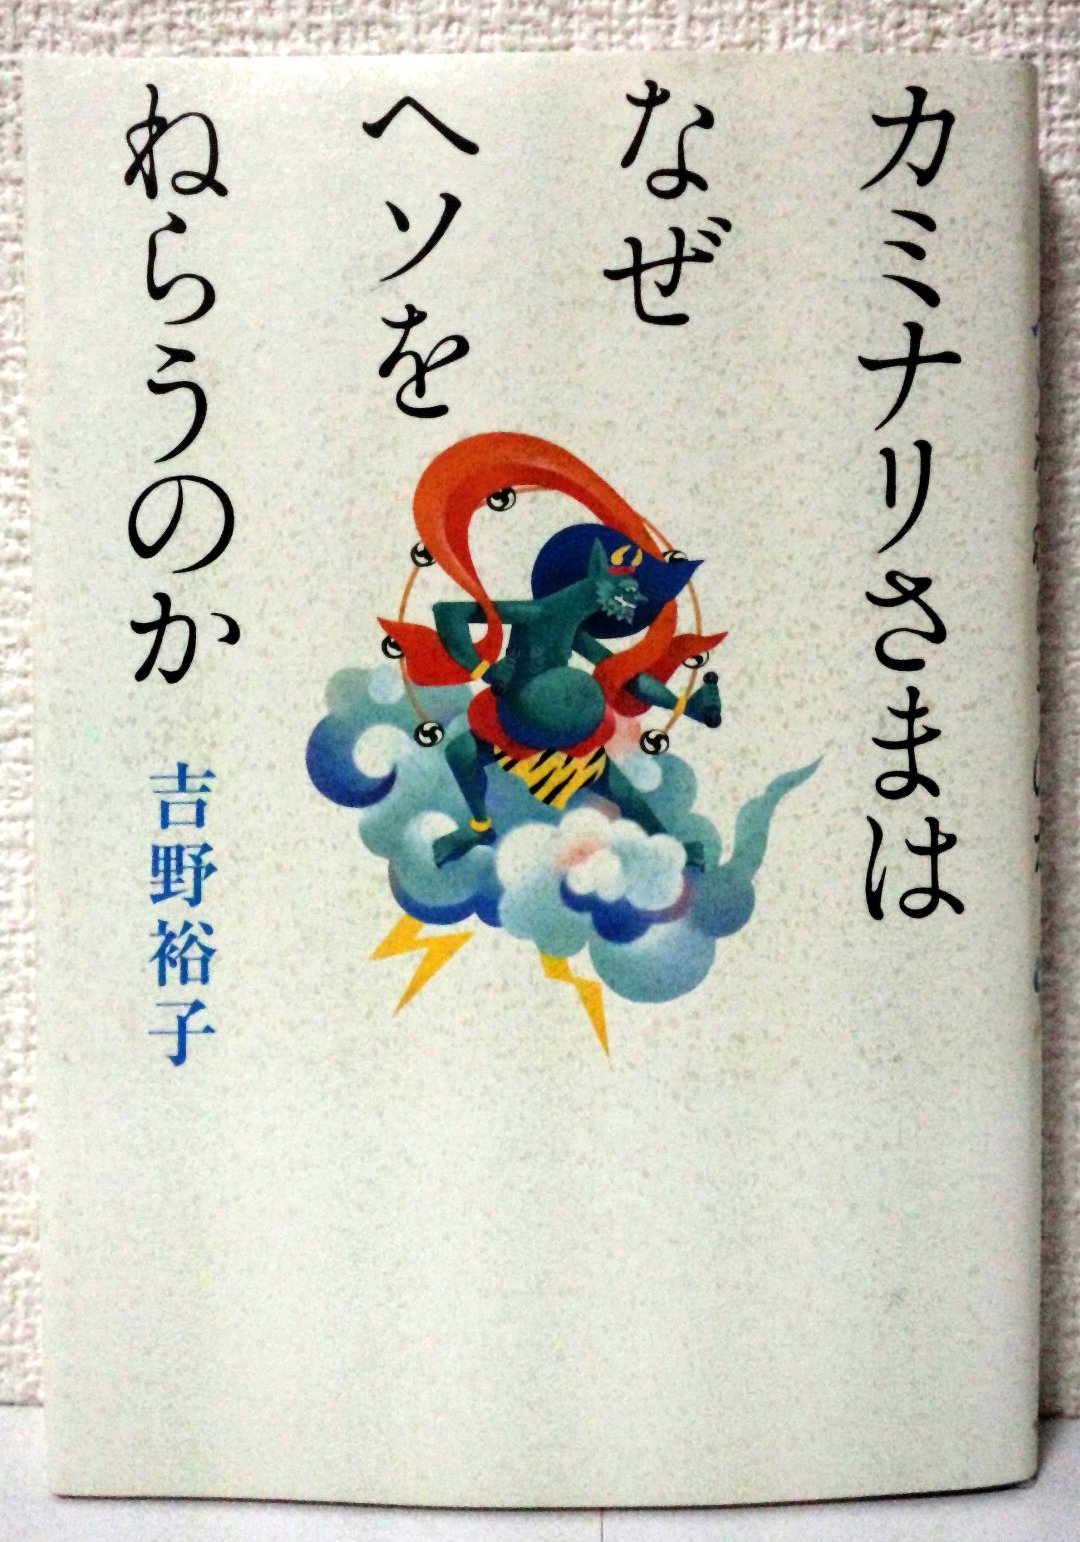 カミナリさまは
なぜ
ヘソを
ねらうのか
吉野裕子